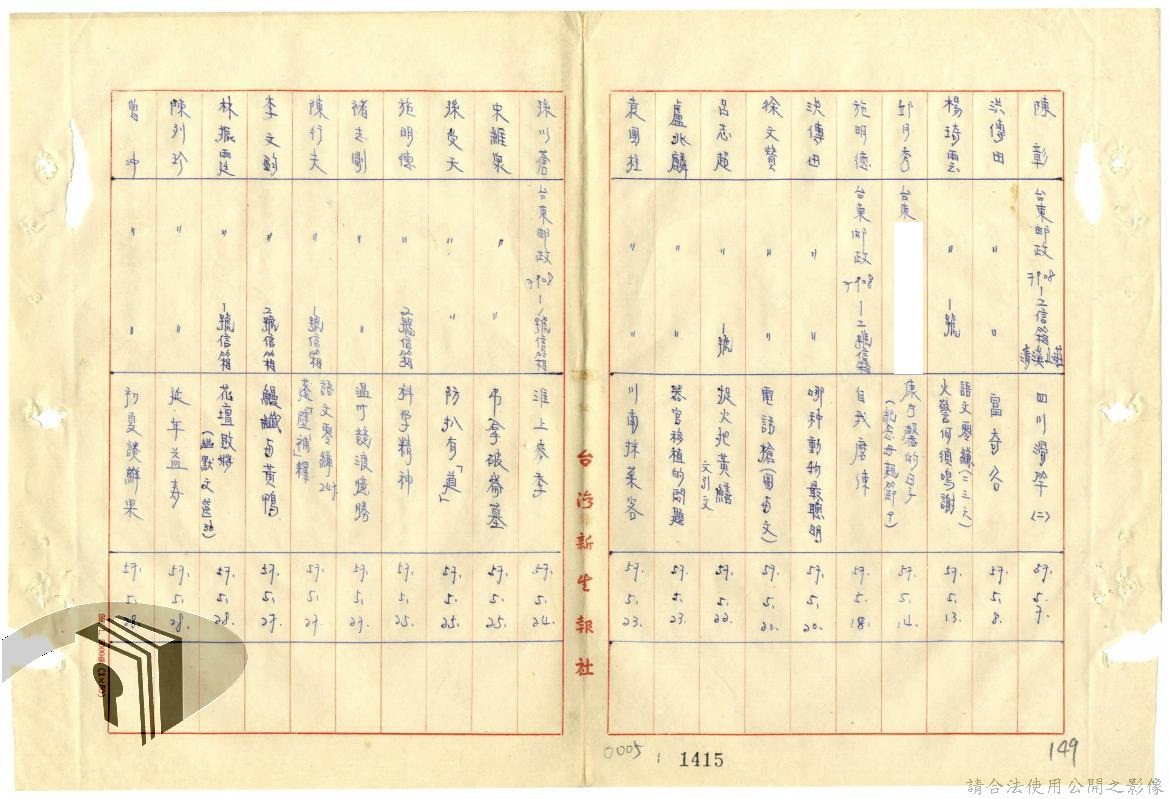 陳彰 台東郵政7908-2信箱清溪山莊 四川滑竿(二) 57.5.7.
洪傳田 〃 〃 富奇谷 57.5.8.
楊琦雲 〃 1號 語文零縑(二三六)火警何須鳴謝 57.5.13.
邱月秀 台東 康乃馨的日子(紀念母親節) 57.5.14.
施明德 台東郵政7908-2號信箱 自我磨練 57.5.18.
洪傳田 〃 〃 哪种動物最聰明 57.5.20.
徐文贊 〃 〃 電話槍(圖与文) 57.5.20.
呂志超 〃 1號 捉火把黃鱔 文引文 57.5.22.
盧兆麟 〃 〃 器官移植的問題 57.5.23.
袁國柱 〃 〃 川南採藥客 57.5.23.
台灣新生報社
孫川蒼 台東郵政7908-1號信箱 淮上麥季 57.5.24.
宋維泉 〃 〃 57.5.25.
孫受天 〃 〃 防扒有「道」 57.5.25.
施明德 〃 2號信箱 科学精神 57.5.25.
褚志剛 〃 〃 57.5.27.
陳行夫 〃 1號信箱 語文零縑247. 57.5.27.
李文 〃 2號信箱 与黃鴨 57.5.27.
林振霆 〃 1號信箱 花壇敗將(幽默文選) 57.5.28.
陳列珍 〃 〃 延年益寿 57.5.28.
曾冲 〃 〃 初夏談鮮果 57.5.28.
0005
1415
149
請合法使用公開之影像